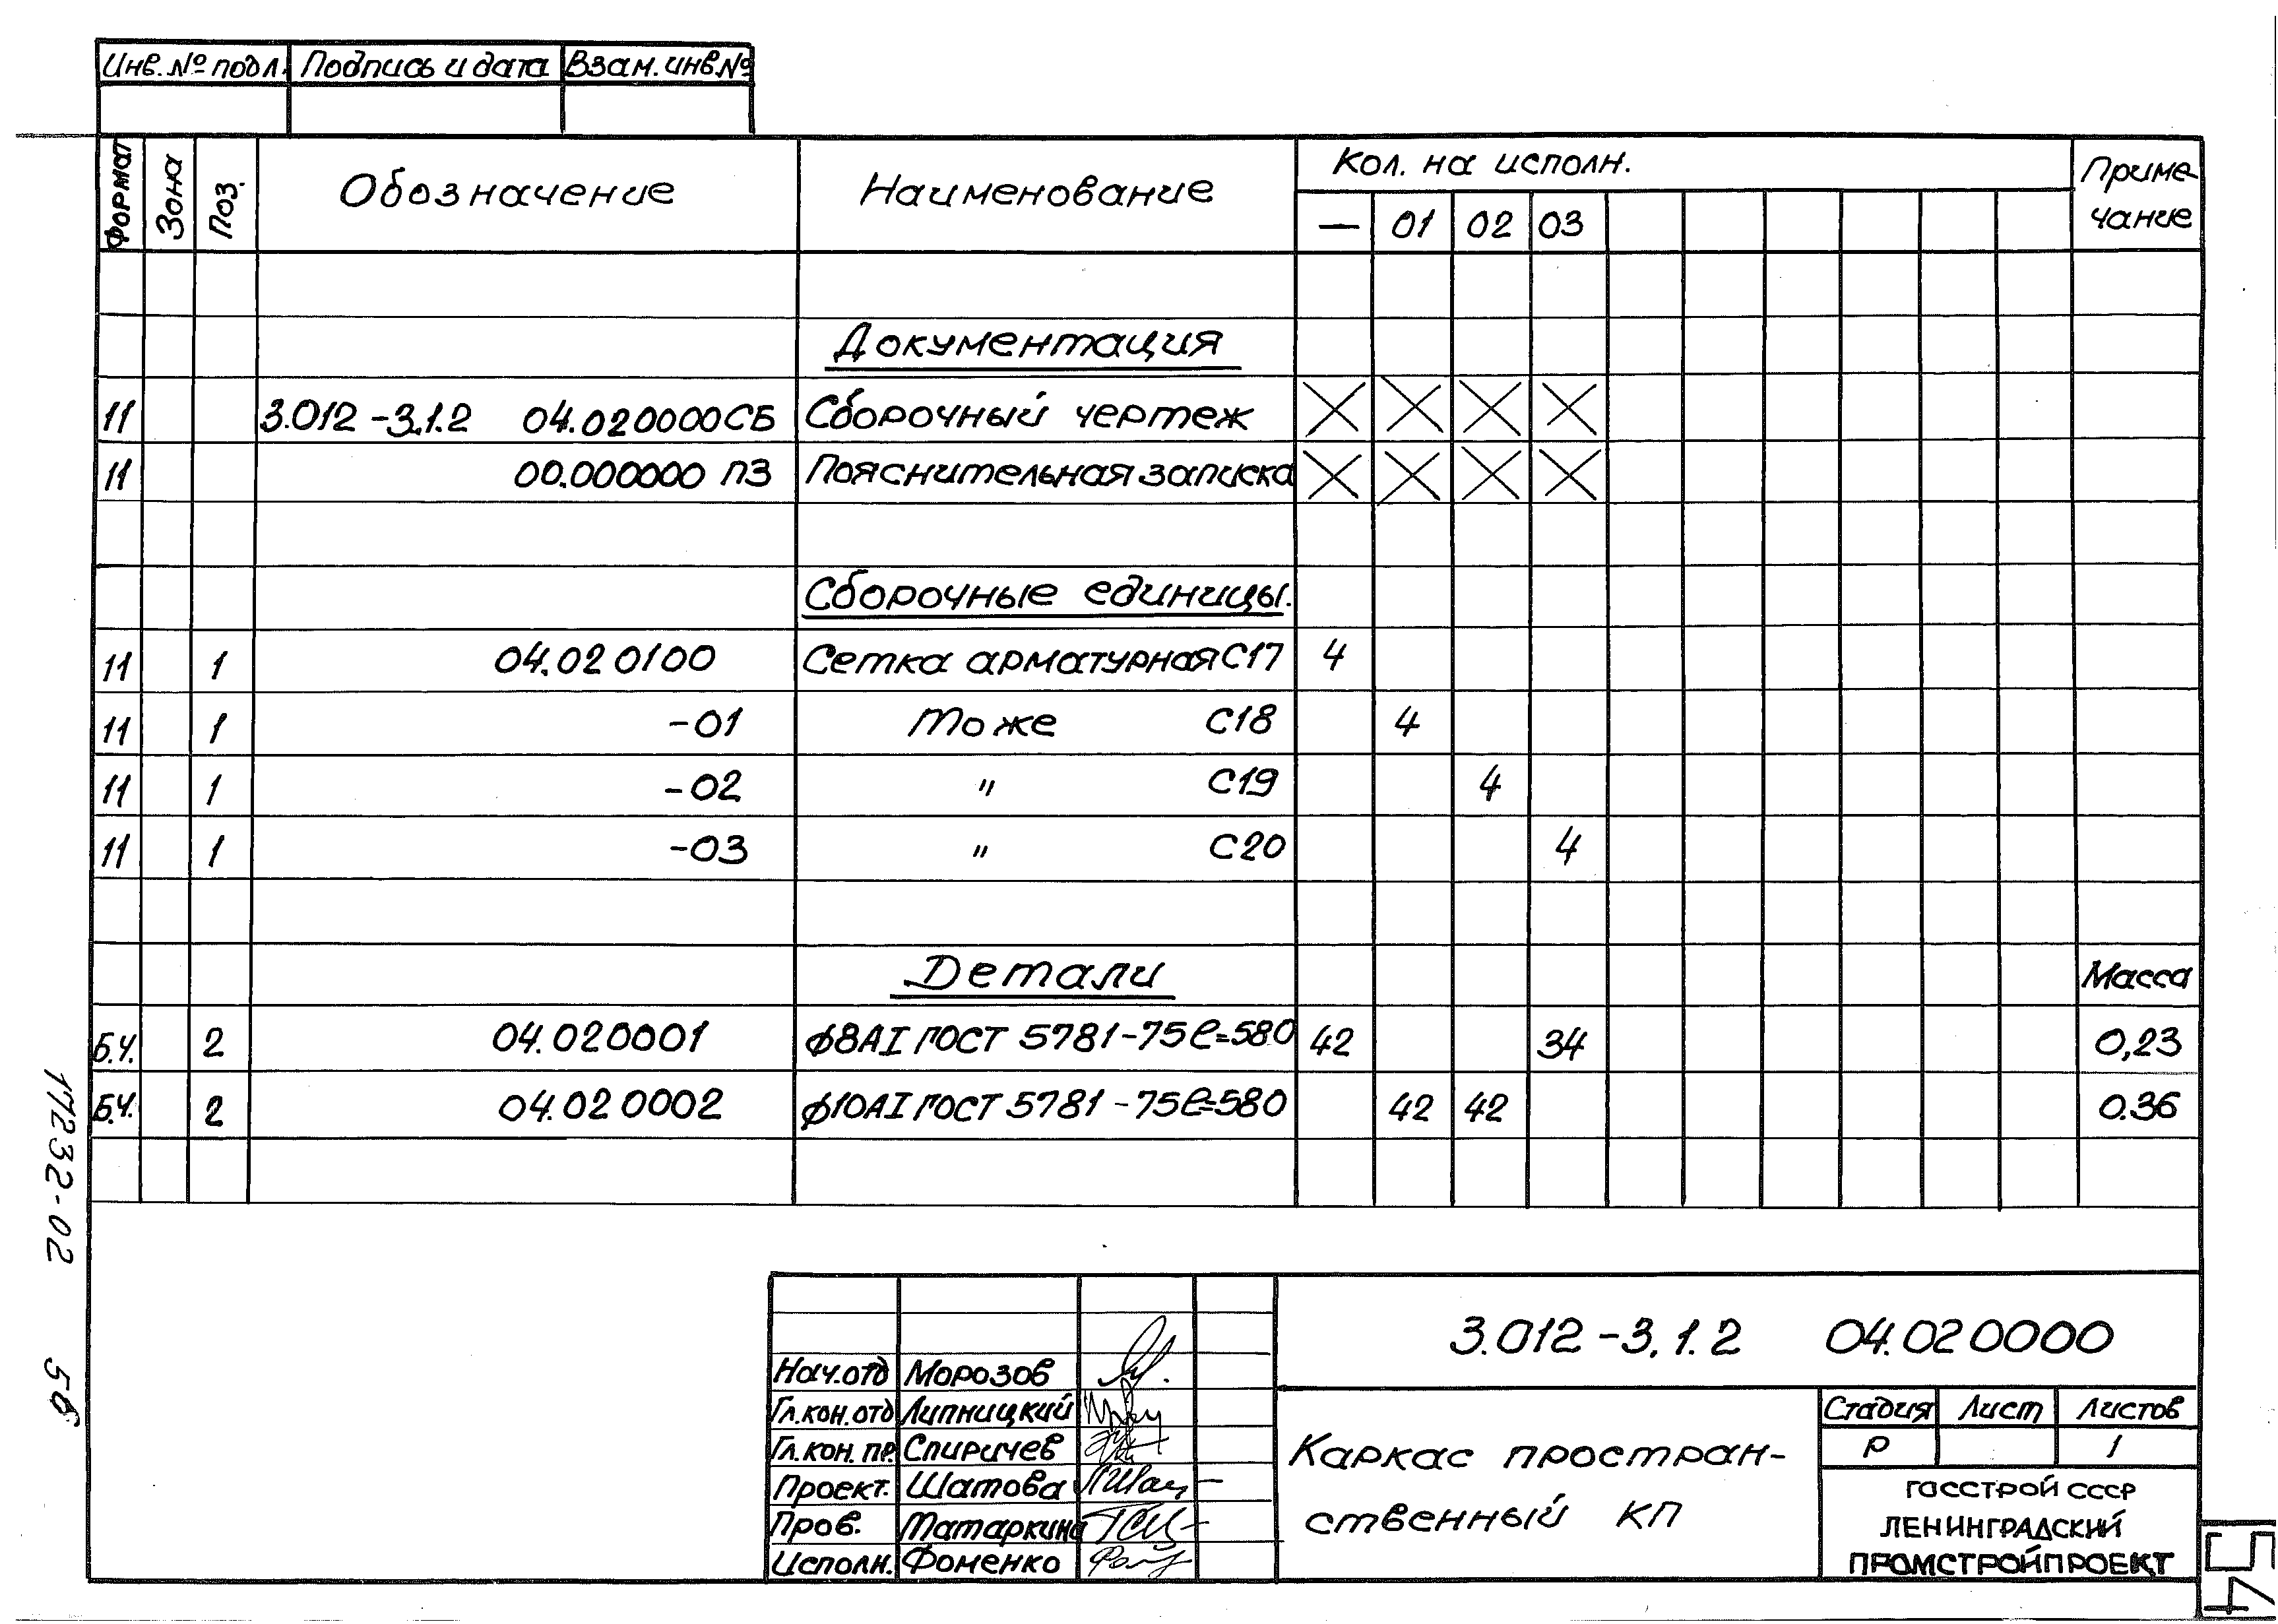 Инв. № подл. Подпись и дата Взам. инв. №
Формат Зона Поз. Обозначение Наименование Кол. на исполн. Приме-
чание
— 01 02 03
Документация
11 3.012-3.1.2 04.020000СБ Сборочный чертеж
11 00.000000 ПЗ Пояснительная записка
Сборочные единицы.
11 1 04.020100 Сетка арматурная С17 4
11 1 -01 То же С18 4
11 1 -02 " С19 4
11 1 -03 " С20 4
Детали Масса
Б.Ч. 2 04.020001 ф8АI ГОСТ 5781-75 ℓ=580 42 34 0,23
Б.Ч. 2 04.020002 ф10АI ГОСТ 5781-75 ℓ=580 42 42 0.36
17232-02
3.012-3.1.2 04.020000
Нач.отд Морозов
Гл.кон.отд Липницкий
Гл.кон.пр. Спиричев
Проект. Шатова
Пров. Матаркина
Исполн. Фоменко
Каркас простран-
ственный КП
Стадия Лист Листов
Р 1
ГОССТРОЙ СССР
ЛЕНИНГРАДСКИЙ
ПРОМСТРОЙПРОЕКТ
54